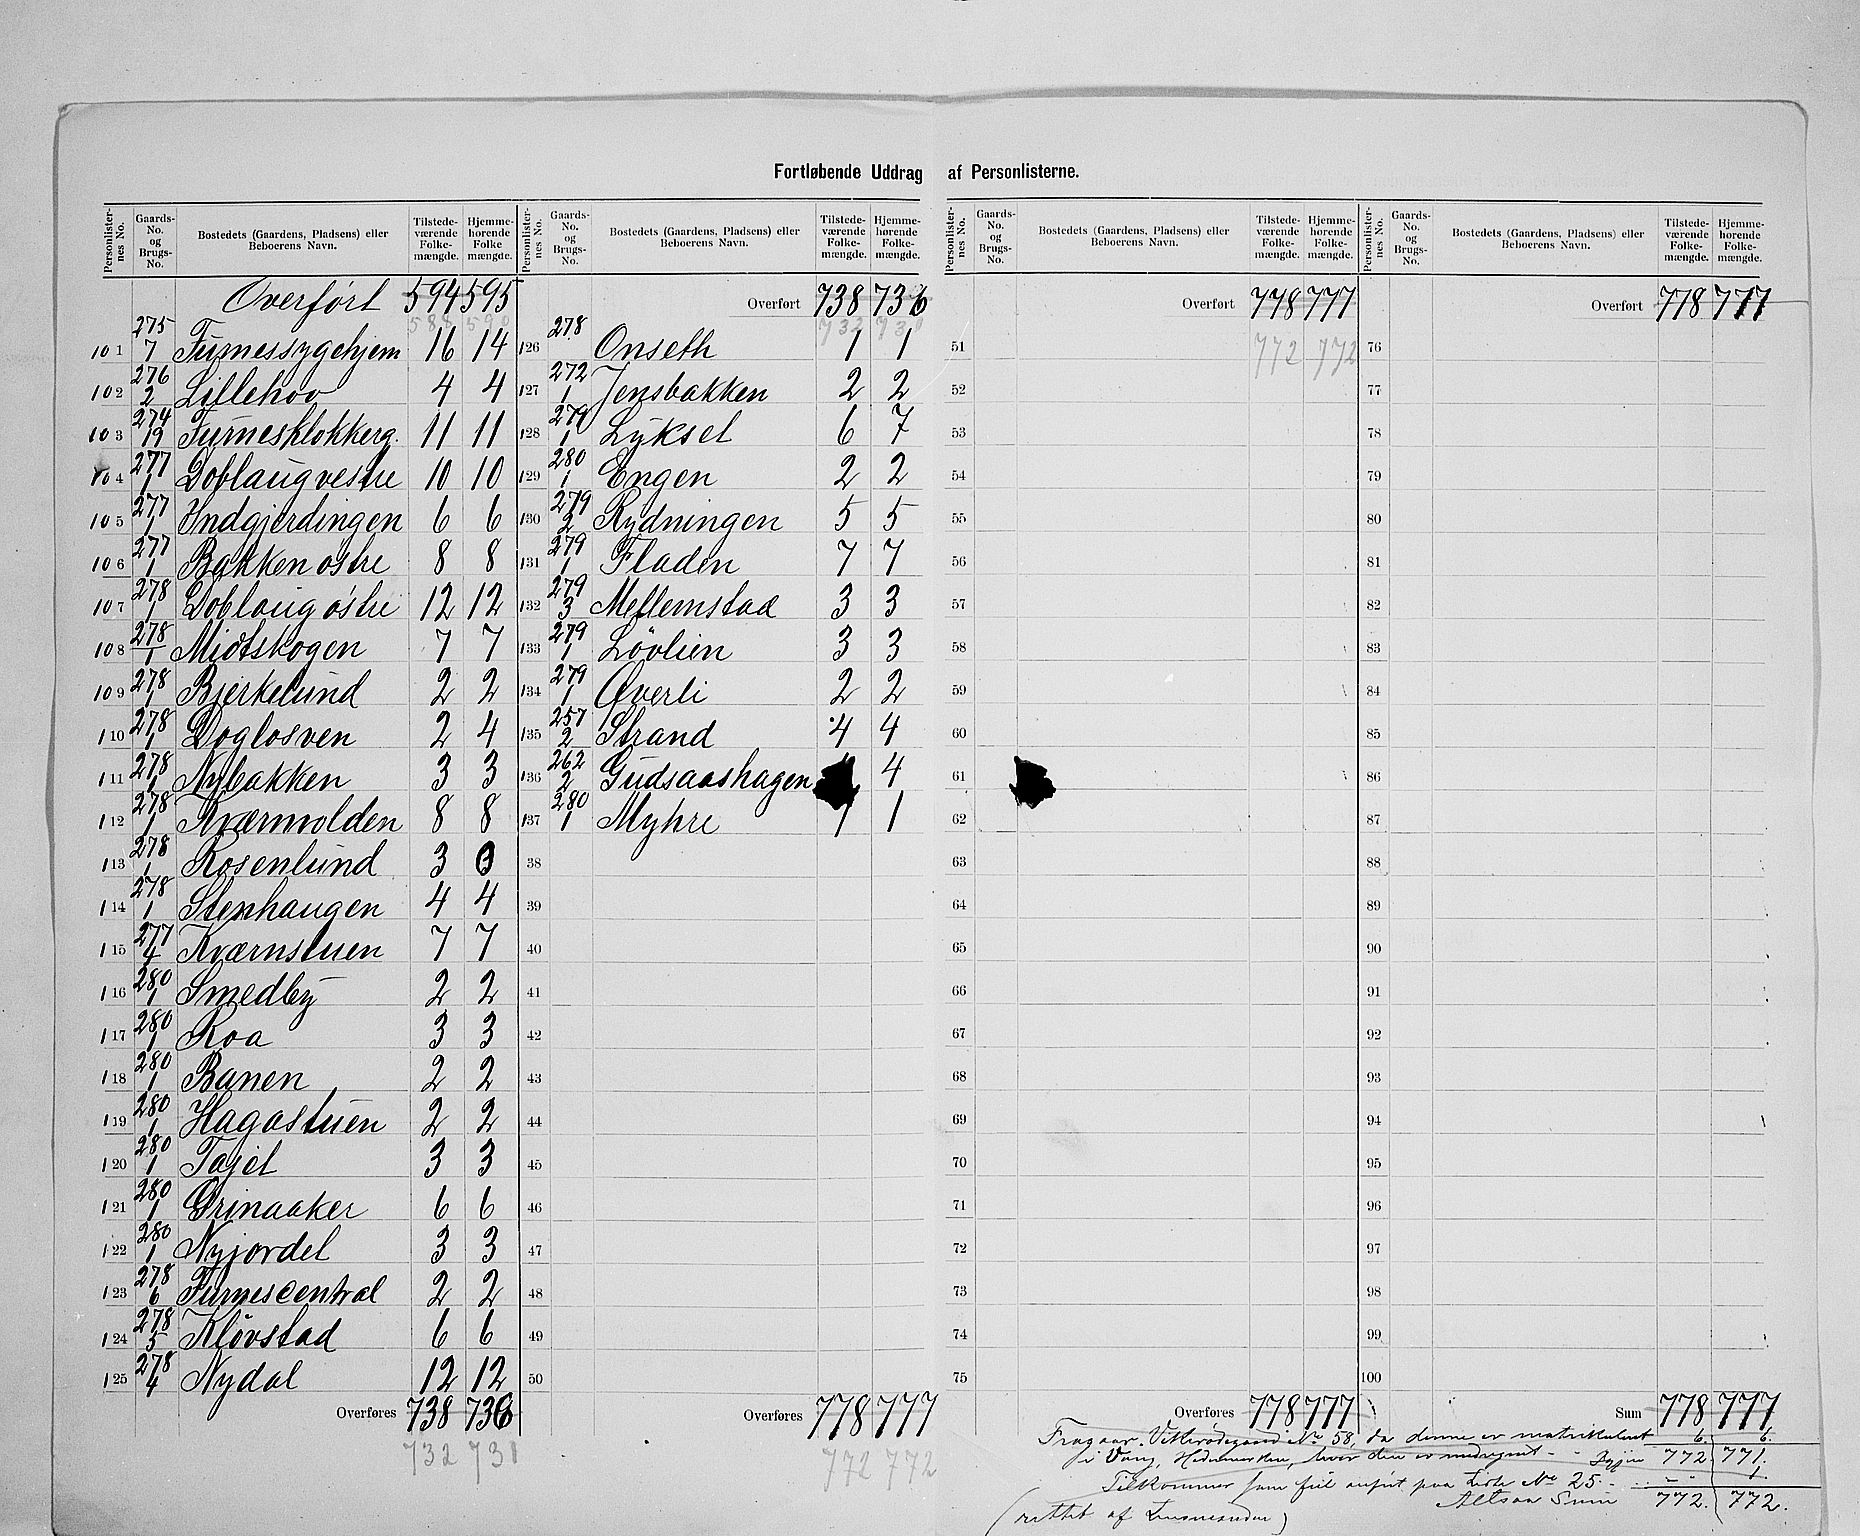 Fortløbende Uddrag af Personlisterne.
Personlister- nes No. Gaards- No. og Brugs- No. Bostedets (Gaardens, Pladsens) eller Beboerens Navn. Tilstede- værende Folke- mængde. Hjemme- hørende Folke mængde.
Overført 594 595
588 590
101 275/7 Furnessygehjem 16 14
102 276/2 Lillehov 4 4
103 274/19 Furnesklokkerg. 11 11
104 277/1 Doblaug vestre 10 10
105 277/1 Indgjerdingen 6 6
106 277/1 Bakken østre 8 8
107 278/1 Doblaug østre 12 12
108 278/1 Midtskogen 7 7
109 278/1 Bjerkelund 2 2
110 278/1 Doglosven 2 4
111 278/1 Nybakken 3 3
112 278/1 Kværnvolden 8 8
113 278/1 Rosenlund 3
114 278/1 Stenhaugen 4 4
115 277/4 Kværnstuen 7 7
116 280/1 Smedby 2 2
117 280/1 Roa 3 3
118 280/1 Banen 2 2
119 280/1 Hagastuen 2 2
120 280/1 Tajet 3 3
121 280/1 Grinaaker 6 6
122 280/1 Nyjordet 3 3
123 278/6 Furnescentral 2 2
124 278/5 Kløvstad 6 6
125 278/4 Nydal 12 12
Overføres 738 736
732 731
Personlister- nes No. Gaards- No. og Brugs- No. Bostedets (Gaardens, Pladsens) eller Beboerens Navn. Tilstede- værende Folke- mængde. Hjemme- hørende Folke- mængde.
Overført 738 736
732 731
126 278 Onseth 1 1
127 272/1 Jensbakken 2 2
128 279/1 Lykset 6 7
129 280/1 Engen 2 2
130 279/2 Rydningen 5 5
131 279/1 Fladen 7 7
132 279/3 Mellemstad 3 3
133 279/1 Løvlien 3 3
134 279/1 Øverli 2 2
135 257/2 Strand 4 4
136 262/2 Gudsaashagen 4
137 280/1 Myhre 1 1
38
39
40
41
42
43
44
45
46
47
48
49
50
Overføres 778 777
772 772
Personlister- nes No. Gaards- No. og Brugs- No. Bostedets (Gaardens, Pladsens) eller Beboerens Navn. Tilstede- værende Folke- mængde. Hjemme- hørende Folke- mængde.
Overført 778 777
772 772
51
52
53
54
55
56
57
58
59
60
61
62
63
64
65
66
67
68
69
70
71
72
73
74
75
Overføres 778 777
Personlister- nes No. Gaards- No. og Brugs- No. Bostedets (Gaardens, Pladsens) eller Beboerens Navn. Tilstede- værende Folke- mængde. Hjemme- hørende Folke- mængde.
Overført 778 777
76
77
78
79
80
81
82
83
84
85
86
87
88
89
90
91
92
93
94
95
96
97
98
99
100
Sum 778 777
Fragaar No 58, da denne er matrikuleret 6. 6.
i Vang, Hedemarken, hvor den er medregnet - 772 771.
Tilkommer som feil anført paa Liste No 25 - - 1
Altsaa Sum 772. 772.
(rettet af )